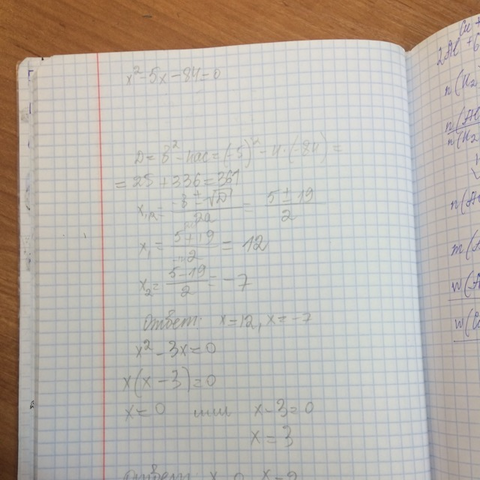 x²-5x-84=0
D=b²-4ac=(-5)²-4·(-84)=
=25+336=361
x₁,₂= (-b±√D)/2a = (5±19)/2
x₁= (5+19)/2 = 12
x₂= (5-19)/2 = -7
Ответ: x=12, x=-7
x²-3x=0
x(x-3)=0
x=0 или x-3=0
x=3
Ответ: x=0, x=3